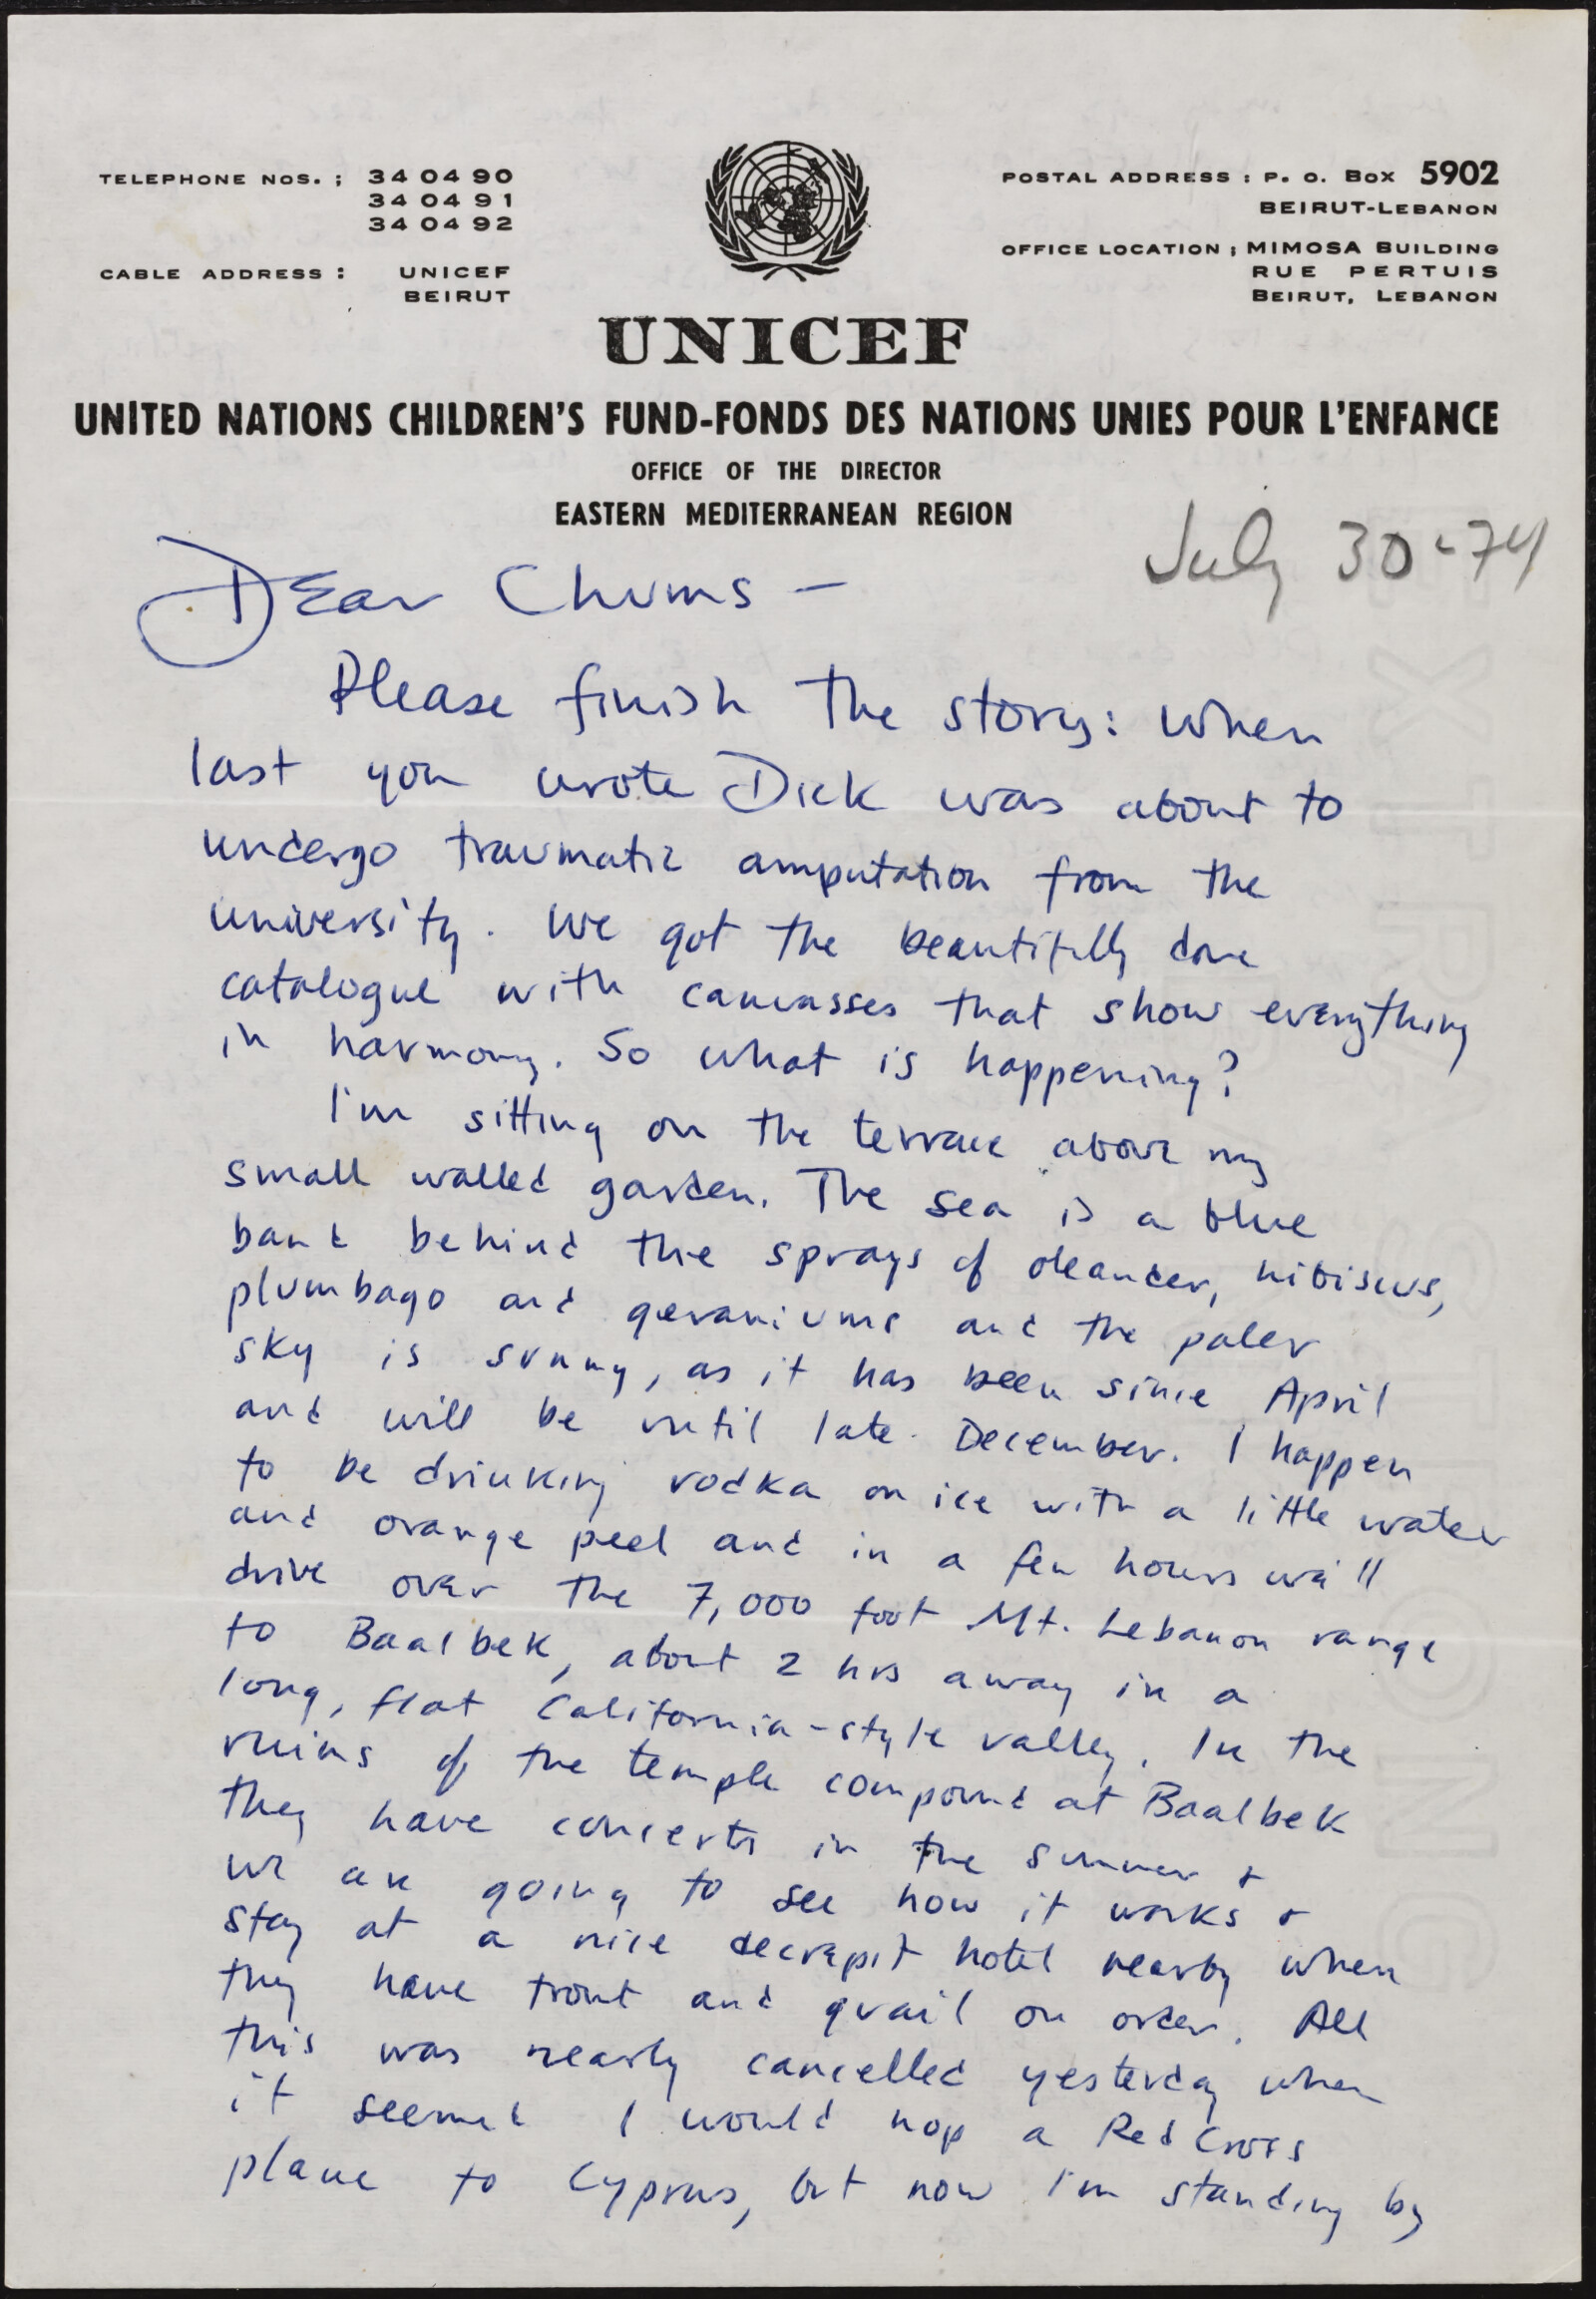 TELEPHONE NOS. ; 34 04 90
34 04 91
34 04 92
CABLE ADDRESS : UNICEF
BEIRUT
POSTAL ADDRESS : P. O. BOX 5902
BEIRUT-LEBANON
OFFICE LOCATION ; MIMOSA BUILDING
RUE PERTUIS
BEIRUT, LEBANON
UNICEF
UNITED NATIONS CHILDREN'S FUND-FONDS DES NATIONS UNIES POUR L'ENFANCE
OFFICE OF THE DIRECTOR
EASTERN MEDITERRANEAN REGION
July 30-74
Dear Chums -
Please finish the story: when
last you wrote Dick was about to
undergo traumatic amputation from the
university. We got the beautifully done
catalogue with canvasses that show everything
in harmony. So what is happening?
I'm sitting on the terrace above my
small walled garden. The sea is a blue
band behind the sprays of oleander, hibiscus,
plumbago and geraniums and the paler
sky is sunny, as it has been since April
and will be until late December. I happen
to be drinking vodka on ice with a little water
and orange peel and in a few hours we'll
drive over the 7,000 foot Mt. Lebanon range
to Baalbek, about 2 hrs away in a
long, flat California-style valley. In the
ruins of the temple compound at Baalbek
they have concerts in the summer &
we are going to see how it works &
stay at a nice decrepit hotel nearby when
they have trout and quail on order. All
this was nearly cancelled yesterday when
it seemed I would hop a Red Cross
plane to Cyprus, but now I'm standing by